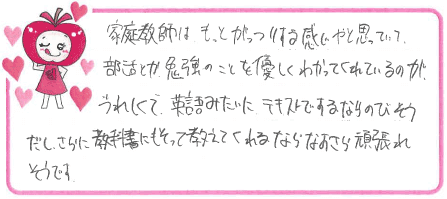 家庭教師は もっとがっつりする感じやと思っていて、
部活とか勉強のことを優しくわかってくれているのが、
うれしくて、英語みたいに テキストでするならのびそう
だし、さらに教科書にもそって教えてくれるならなおさら頑張れ
そうです。